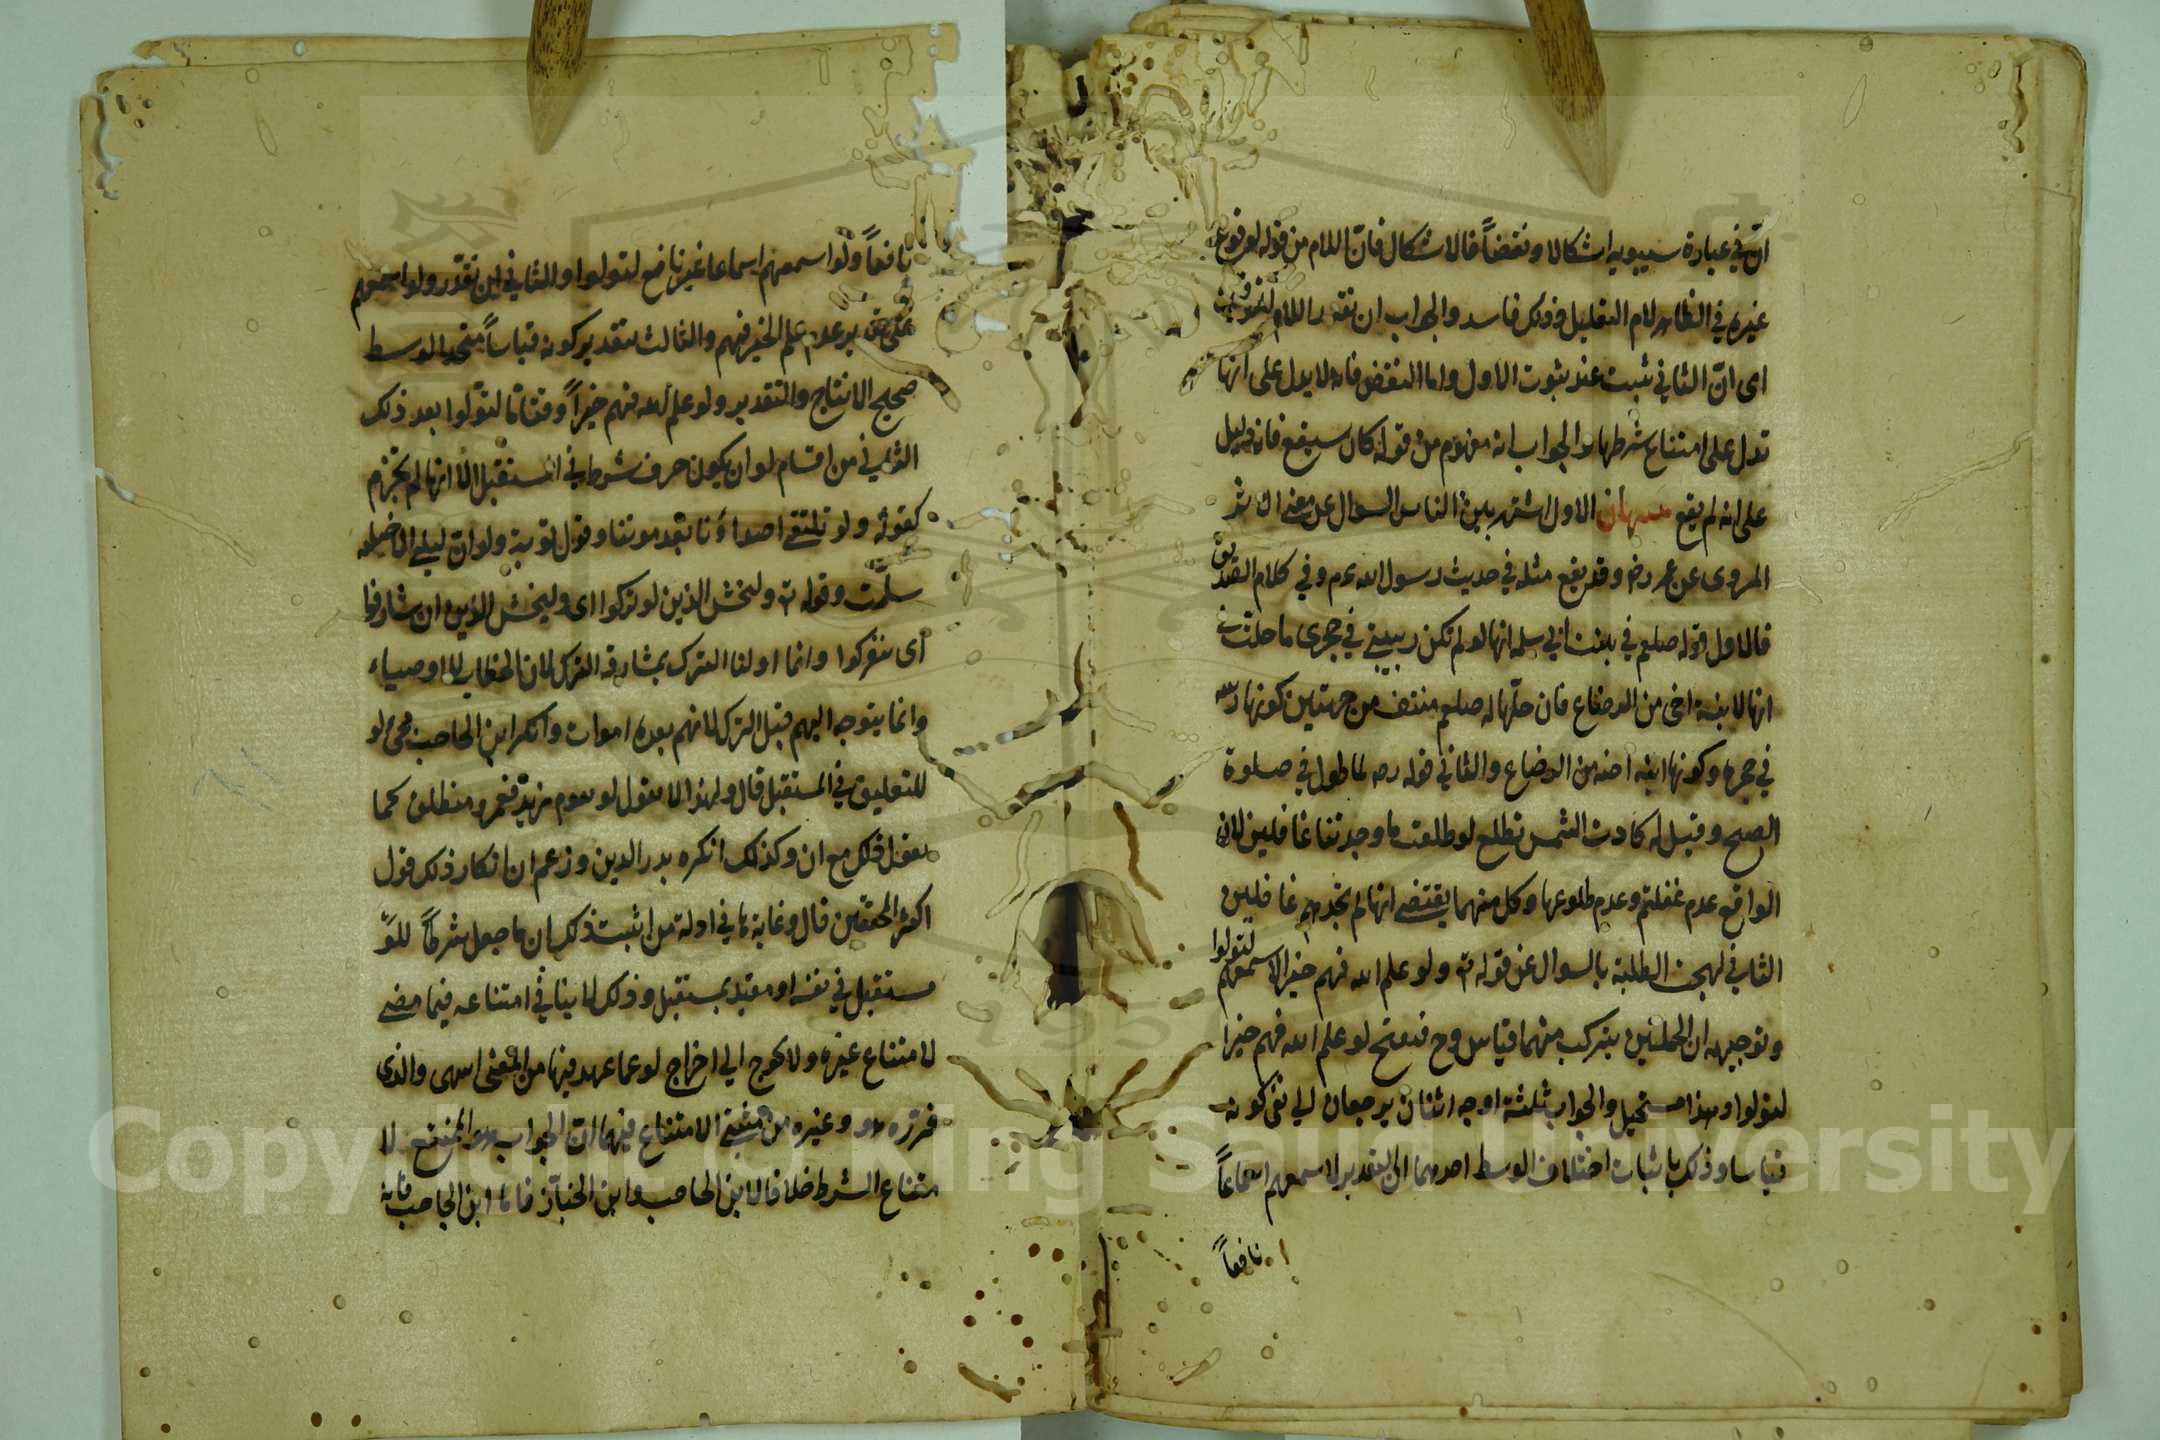 انّ في عبارة سيبويه اشكالا ونقضاً فالاشكال فانّ اللام من قوله لوقوع
غيره في الظاهر لام التعليل وذلك فاسد والجواب ان نقدر اللام للتوقيت
اى انّ الثاني ثبت عند ثبوت الاول واما النقض فانه لا يدل على انها
تدل على امتناع شرطها والجواب انه مفهوم من قوله كان سيقع فانه دليل
على انه لم يقع تنبيهان الاول اشتهر بين الناس السوال عن معنى الاثر
المروى عن عمر رض وقد يقع مثله في حديث رسول الله عم وفي كلام الصديق
فالاول قوله صلعم في بنت ابي سلمه انها لو لم تكن ربيبتي في حجرى ما حلت لي
انها لابنة اخى من الرضاع فان حلّها له صلعم منتف من جهتين كونها ربيبته
في حجره وكونها ابنه اخيه من الرضاع والثاني قوله رضه لما طول في صلوة
الصبح وقيل له كادت الشمس تطلع لو طلعت ما وجدتنا غافلين لان
الواقع عدم غفلتهم وعدم طلوعها وكل منهما يقتضى انها لم تجدهم غافلين
الثاني لهجت الطلبة بالسوال عن قوله ته ولو علم الله فيهم خيرا لاسمعهم لتولوا
وتوجيهه ان الجملتين يتركب منهما قياس وح فينتج لو علم الله فيهم خيرا
لتولوا وهذا مستحيل والجواب ثلثة اوجه اثنان يرجعان الى نفى كونه
قياسا وذلك باثبات اختلاف الوسط احدهما ان التقدير لاسمعهم اسماعاً
نافعاً
نافعاً ولو اسمعهم اسماعا غير نافع لتولوا والثاني ان تقدّر ولو اسمعهم
على تقدير عدم علم الخير فيهم والثالث بتقدير كونه قياساً متحد الوسط
صحيح الانتاج والتقدير ولو علم الله فيهم خيراً وقتاً ما لتولّوا بعد ذلك
الثاني من اقسام لو ان يكون حرف شرط في المستقبل الا انها لم تجزم
كقوله ولو تلتقى اصداؤنا بعد موتنا وقول توبة ولو انّ ليلى الاخيليه
سلّمت وقوله ته وليخش الذين لو تركوا اى وليخش الذين ان شارفوا
اى يتركوا وانما اولنا الترك بمشارفه الترك لان الخطاب للاوصياء
وانما يتوجه اليهم قبل الترك لانهم بعده اموات وانكر ابن الحاجب مجى لو
للتعليق في المستقبل قال ولهذا لا يقول لو يقوم زيد فعمرو منطلق كما
يقول ذلك مع ان وكذلك انكره بدر الدين وزعم ان انكار ذلك قول
اكثر المحققين قال وغاية ما في ادلة من اثبت ذلك ان ما جعل شرطاً للوّ
مستقبل في نفسه او مقيد بمستقبل وذلك لا ينافي امتناعه فيما مضى
لامتناع غيره ولا يحوج الى اخراج لو عما عهد فيها من المعنى انتهى والذى
قرّره هو وغيره من مثبتى الامتناع فيهما ان الجواب هو الممتنع لا
متناع الشرط خلافا لابن الحاجب وابن الخبّاز فاما ابن الحاجب فانه